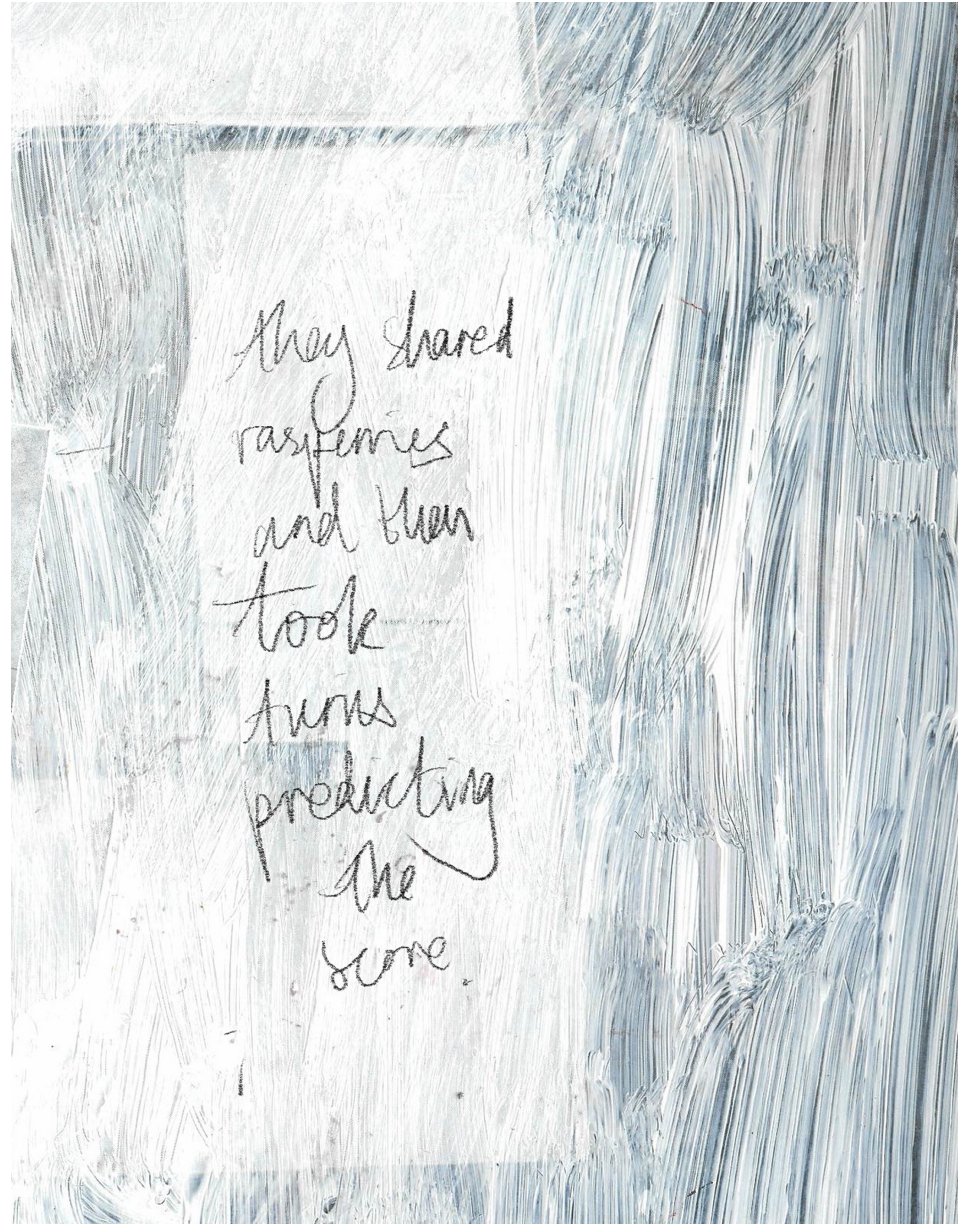 they shared
rasperries
and then
took
turns
predicting
the
score.